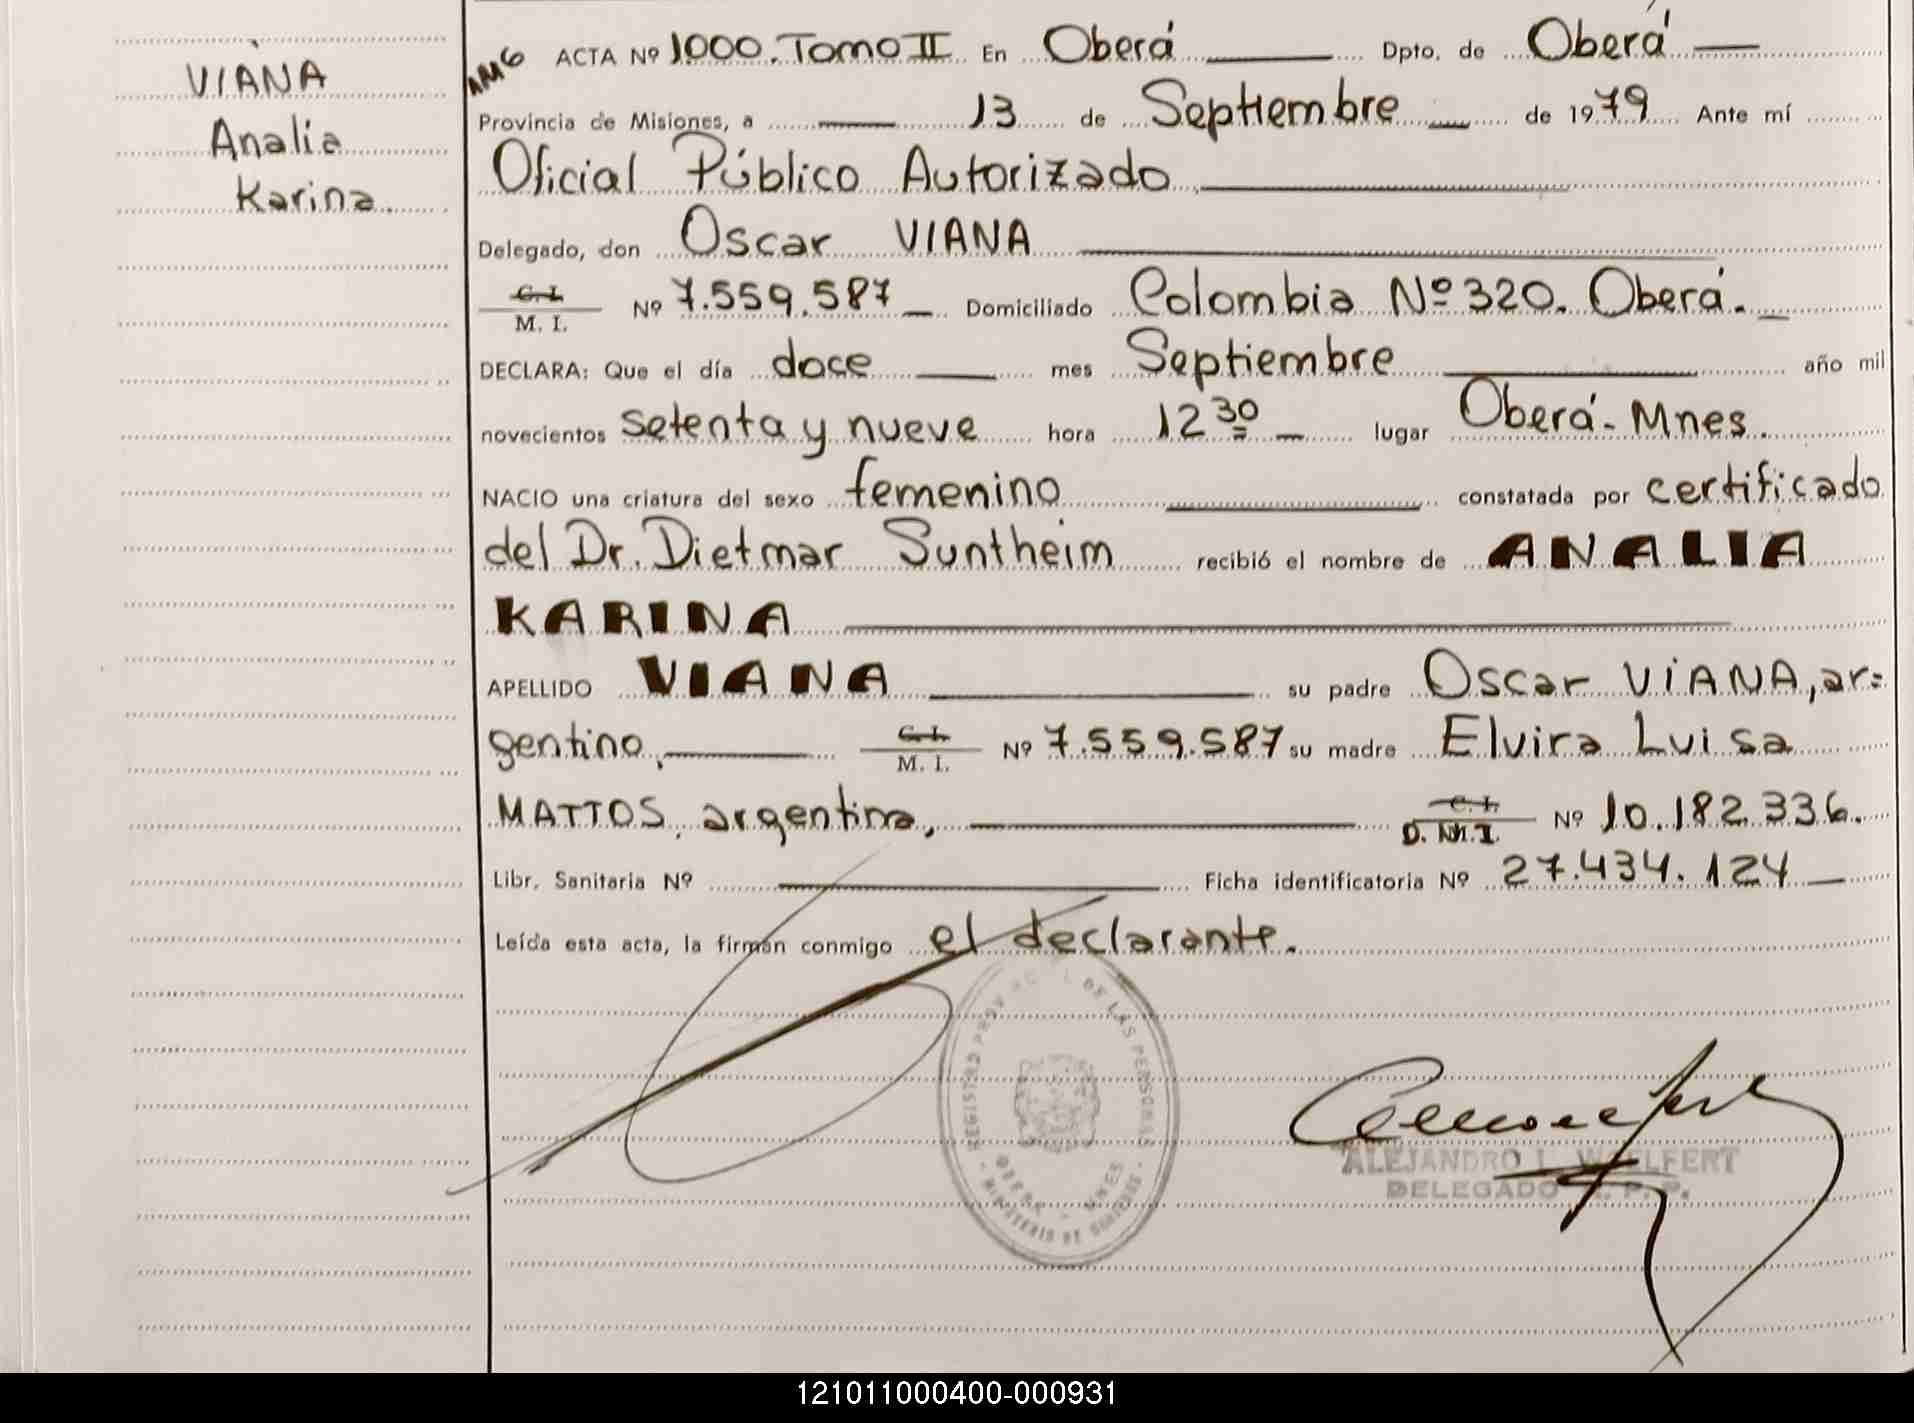 VIANA
Analia
Karina.
ACTA Nº 1000. Tomo II En Oberá Dpto. de Oberá
Provincia de Misiones, a 13 de Septiembre de 1979 Ante mí
Oficial Público Autorizado
Delegado, don Oscar VIANA
C. I.
M. I. Nº 7.559.587 Domiciliado Colombia Nº 320. Oberá.
DECLARA: Que el día doce mes Septiembre año mil
novecientos setenta y nueve hora 12 30 lugar Oberá - Mnes.
NACIO una criatura del sexo femenino constatada por certificado
del Dr. Dietmar Suntheim recibió el nombre de ANALIA
KARINA
APELLIDO VIANA su padre Oscar VIANA, ar=
gentino, C. I. M. I. Nº 7.559.587 su madre Elvira Luisa
MATTOS, argentina, C. I. D. N. I. Nº 10.182.336.
Libr. Sanitaria Nº Ficha identificatoria Nº 27.434.124
Leída esta acta, la firman conmigo el declarante.
REGISTRO PROV DE LAS PERSONAS
OBERA - MNES
MINISTERIO DE GOBIERNO
ALEJANDRO L. WOELFERT
DELEGADO R. P. P.
121011000400-000931